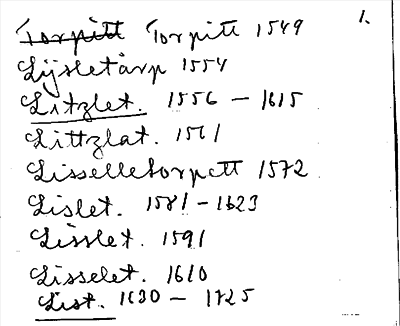 Torpitt Torpitt 1549 1.
Lijsletårp 1554
Litzlet. 1556 – 1615
Littzlat. 1561
Lisselletorpett 1572
Lislet. 1581 – 1623
Lisslet. 1591
Lisselet. 1610
List. 1630 – 1725